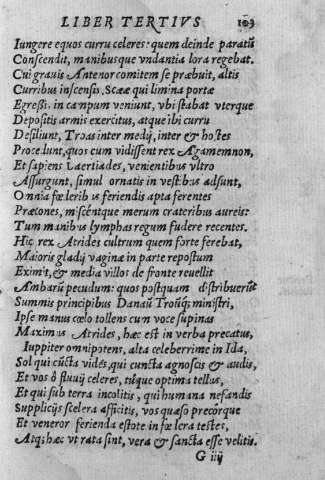 LIBER TERTIVS 103
Iungere equos curru celeres: quem deinde paratũ
Conscendit, manibusque vndantia lora regebat.
Cui grauis Antenor comitem se præbuit, altis
Curribus inscensis, Scææ qui limina portæ
Egreßi, in campum veniunt, vbi stabat vterque
Depositis armis exercitus, atque ibi curru
Desiliunt, Troas inter medij, inter & hostes
Procedunt, quos cum vidissent rex Agamemnon,
Et sapiens Laertiades, venientibus vltro
Assurgunt, simul ornatis in vestibus adsunt,
Omnia fœderibus feriendis apta ferentes
Præcones, miscéntque merum crateribus aureis:
Tum manibus lymphas regum fudere recentes.
Hic rex Atrides cultrum quem forte ferebat,
Maioris gladij vaginæ in parte repostum
Eximit, & media villos de fronte reuellit
Ambarũ pecudum: quos postquam distribuerũt
Summis principibus Danaũ Troũq; ministri,
Ipse manus cœlo tollens cum voce supinas
Maximus Atrides, hæc est in verba precatus,
Iuppiter omnipotens, alta celeberrime in Ida,
Sol qui cũcta vidés, qui cuncta agnoscis & audis,
Et vos ô fluuij celeres, túque optima tellus,
Et qui sub terra incolitis, qui humana nefandis
Supplicijs scelera afficitis, vos quæso precórque
Et veneror ferienda estote in fœdera testes,
Atq; hæc vt rata sint, vera & sancta esse velitis.
G iiij